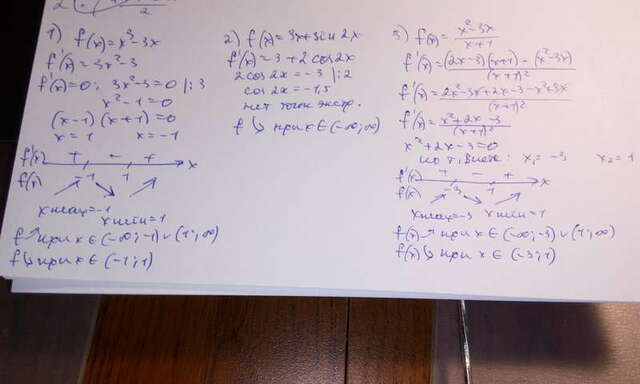 1) f(x)=x³-3x
f'(x)=3x²-3
f'(x)=0; 3x²-3=0 |:3
x²-1=0
(x-1)(x+1)=0
x=1 x=-1
f'(x) + - + x
f(x) -1 1
xmax=-1
xmin=1
f↗ при x∈(-∞;-1)∪(1;∞)
f↘ при x∈(-1;1)
2) f(x)=3x+sin2x
f'(x)=3+2cos2x
2cos2x=-3 |:2
cos2x=-1,5
нет точек экстр.
f↘ при x∈(-∞;∞)
3) f(x)=(x²-3x)/(x+1)
f'(x)=((2x-3)(x+1)-(x²-3x))/(x+1)²
f'(x)=(2x²-3x+2x-3-x²+3x)/(x+1)²
f'(x)=(x²+2x-3)/(x+1)²
x²+2x-3=0
по т. Виета: x₁=-3 x₂=1
f'(x) + - + x
f(x) -3 1
xmax=-3 xmin=1
f(x)↗ при x∈(-∞;-3)∪(1;∞)
f(x)↘ при x∈(-3;1)